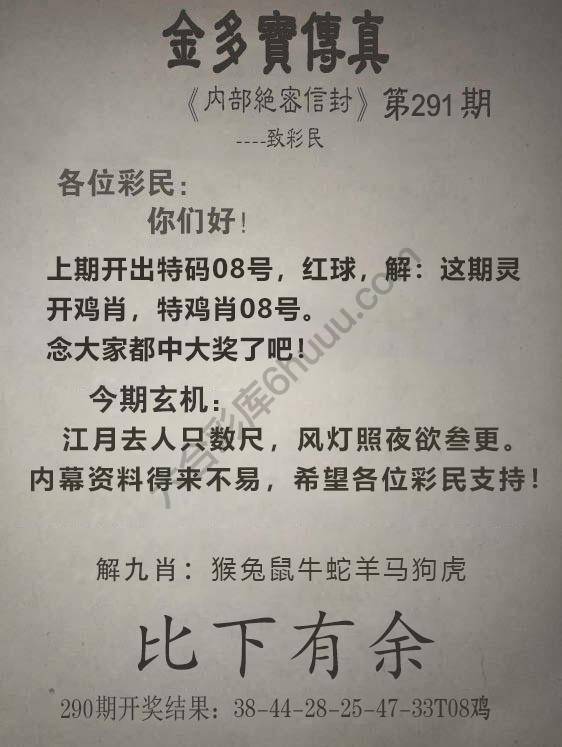 金多寶傳真
《内部絶密信封》第291期
----致彩民
各位彩民:
你们好!
上期开出特码08号，红球，解：这期灵
开鸡肖，特鸡肖08号。
念大家都中大奖了吧!
今期玄机：
江月去人只数尺，风灯照夜欲叁更。
内幕资料得来不易，希望各位彩民支持!
六合彩库6huuu.com
解九肖：猴兔鼠牛蛇羊马狗虎
比下有余
290期开奖结果：38-44-28-25-47-33T08鸡